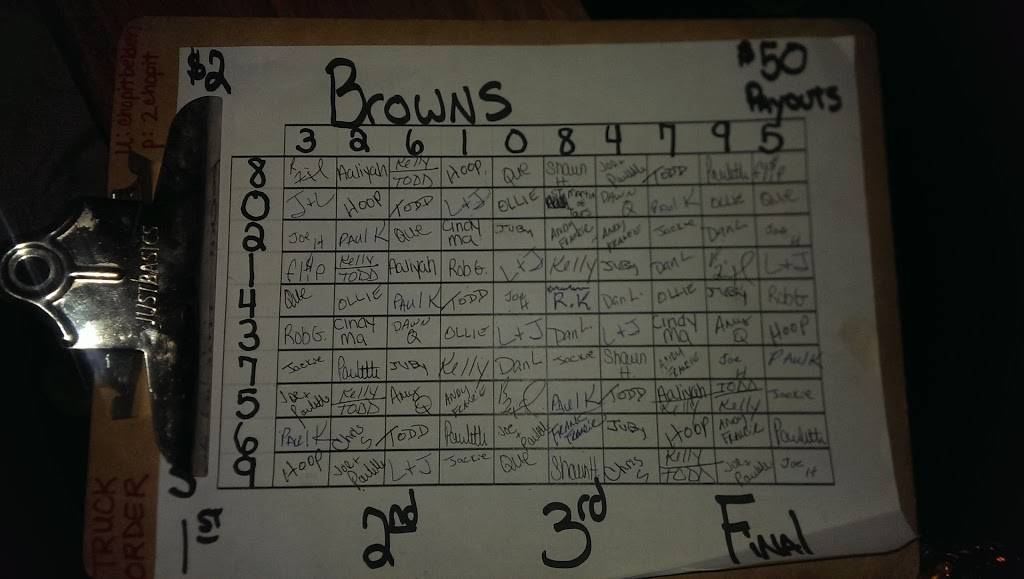 $2
$50
PAYOUTS
BROWNS
3 2 6 1 0 8 4 7 9 5
8 Aaliyah Kelly/TODD HOOP. Que Shaun H Joe+Paulette TODD Paulette
0 J+L HOOP TODD L+J OLLIE DAWN Q Paul K OLLIE Que
2 Joe H PAUL K Que Cindy Ma JUBy ANDY FRANCIE ANDY FRANCIE Jackie Dan L. Joe H
1 flip Kelly/TODD Aaliyah Rob G. L+J Kelly JUBy Dan L L+J
4 Que OLLIE PAUL K TODD Joe H R.K Dan L. OLLIE JUBy Rob G
3 Rob G. Cindy Ma DAWN Q OLLIE L+J Dan L L+J Cindy Ma Andy Q HOOP
7 Jackie Paulette JUBy Kelly Dan L Jackie Shaun H ANDY FRANCIE Joe H PAUL K
5 Joe+Paulette Kelly/TODD Andy Q ANDY FRANCIE Paul K TODD Aaliyah/Kelly TODD/Kelly Jackie
6 PAUL K Chris S TODD Paulette Joe+Paulette JUBy HOOP ANDY FRANCIE Paulette
9 HOOP Joe+Paulette L+J Jackie Que Shaun H Chris S Kelly/TODD Joe+Paulette Joe H
1ST 2nd 3rd FINAL
JUST BASICS
p: 2chopit
TRUCK
ORDER